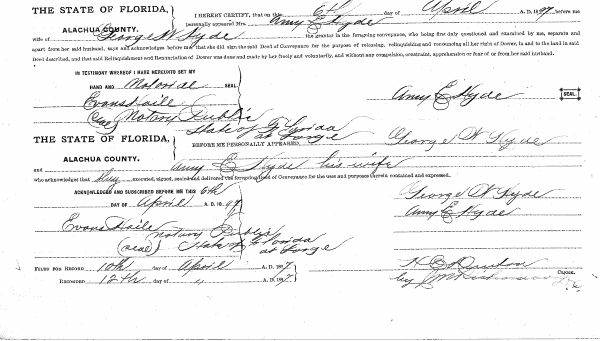 THE STATE OF FLORIDA,
ALACHUA COUNTY.
I HEREBY CERTIFY, that on this 6th day of April A. D. 1897, before me
personally appeared Mrs. Amy E Hyde
wife of George W Hyde the grantor in the foregoing conveyance, who being first duly questioned and examined by me, separate and
apart from her said husband, says and acknowledges before me, that she did sign the said Deed of Conveyance for the purpose of releasing, relinquishing and renouncing all her right of Dower, in and to the land in said
Deed described, and that said Relinquishment and Renunciation of Dower was done and made by her freely and voluntarily, and without any compulsion, constraint, apprehension or fear of or from her said husband.
IN TESTIMONY WHEREOF I HAVE HEREUNTO SET MY
HAND AND Notorial SEAL
Amy E Hyde SEAL
Evans Haile
(seal) Notary Public
State of Florida
at Large
THE STATE OF FLORIDA,
ALACHUA COUNTY.
BEFORE ME PERSONALLY APPEARED George W Hyde
and Amy E Hyde his wife
who acknowledged that they executed, signed, sealed and delivered the foregoing Deed of Conveyance for the uses and purposes therein contained and expressed.
ACKNOWLEDGED AND SUBSCRIBED BEFORE ME THIS 6th
DAY OF April 1897
George W Hyde
Amy E Hyde
Evans Haile
Notary Public
(seal) State of Florida
at Large
FILED FOR RECORD 10th day of April A. D. 1897
RECORDED 12th day of " A. D. 1897
CLERK.
by